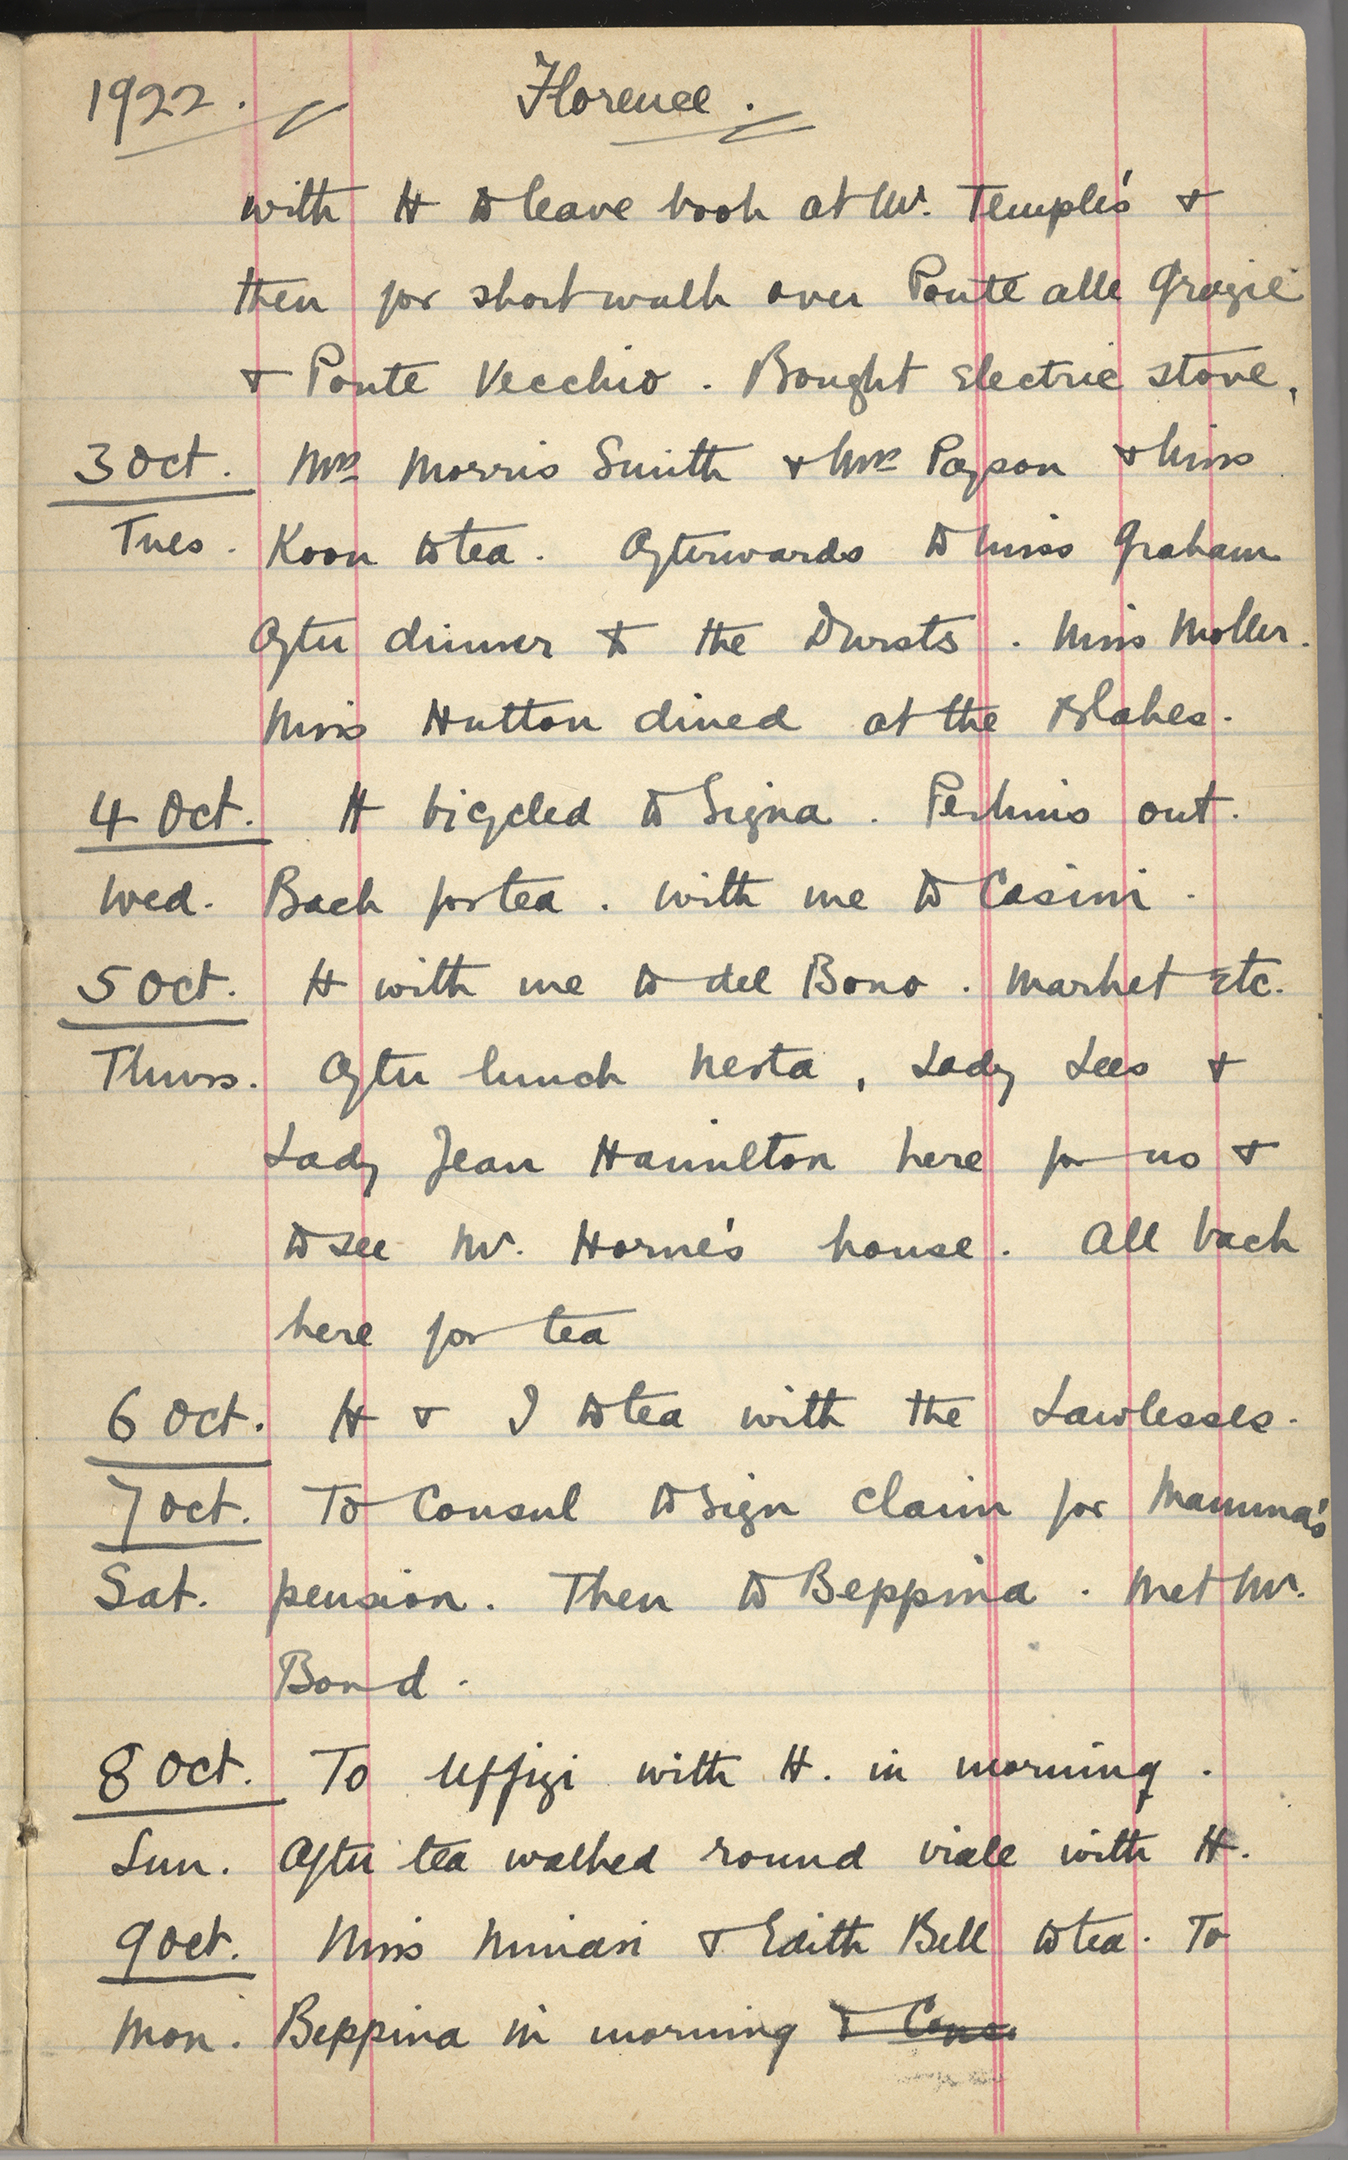 1922. Florence.
with H to leave book at Mr. Temple's &
then for short walk over Ponte alle Grazie
& Ponte Vecchio. Bought Electric stove.
3 Oct. Mrs Morris Smith & Mrs Payson & Miss
Tues. Koon to tea. Afterwards to Miss Graham
After dinner to the Dursts. Miss Moller.
Miss Hutton dined at the Blakes.
4 Oct. H bicycled to Signa. Perkins out.
Wed. Back for tea. With me to Casini.
5 Oct. H with me to del Bono. Market Etc.
Thurs. After lunch Nesta, Lady Lees &
Lady Jean Hamilton here for us &
to see Mr. Horne's house. All back
here for tea
6 Oct. H & I to tea with the Lawlesses.
7 Oct. To Consul to sign claim for Mamma's
Sat. pension. Then to Beppina. Met Mr.
Bond.
8 Oct. To Uffizi with H. in morning.
Sun. After tea walked round viale with H.
9 Oct. Miss & Edith Bell to tea. To
Mon. Beppina in morning &